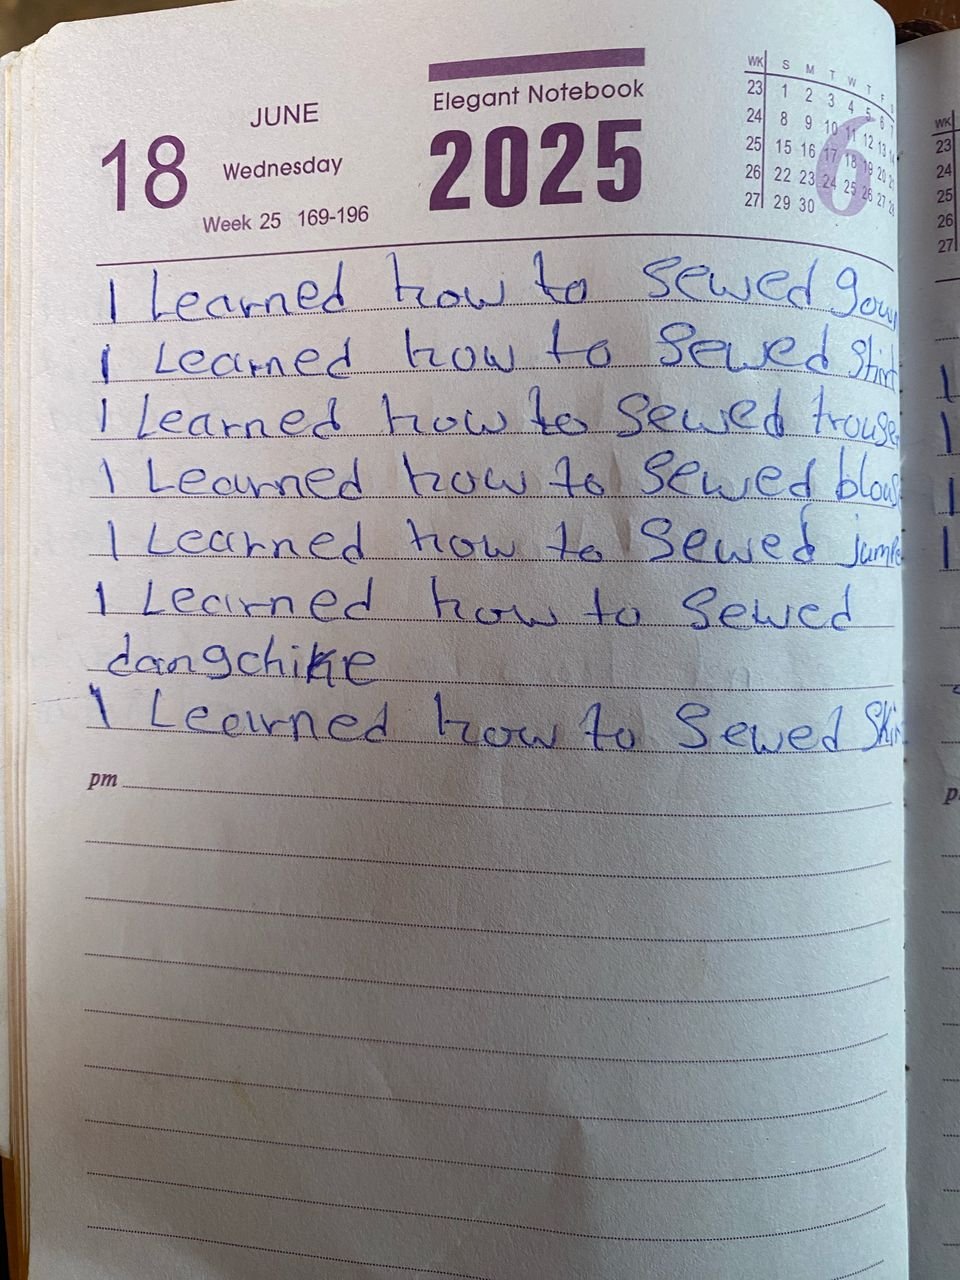 JUNE
18
Wednesday
Week 25 169-196
Elegant Notebook
2025
WK S M T W T F S
23 1 2 3 4 5 6 7
24 8 9 10 11 12 13 14
25 15 16 17 18 19 20 21
26 22 23 24 25 26 27 28
27 29 30
6
I Learned how to sewed gown
I Learned how to sewed Shirt
I Learned how to sewed trouser
I Learned how to sewed blous
I Learned how to Sewed jump
I Learned how to Sewed
dangchike
I Learned how to Sewed Skir
pm
WK
23
24
25
26
27